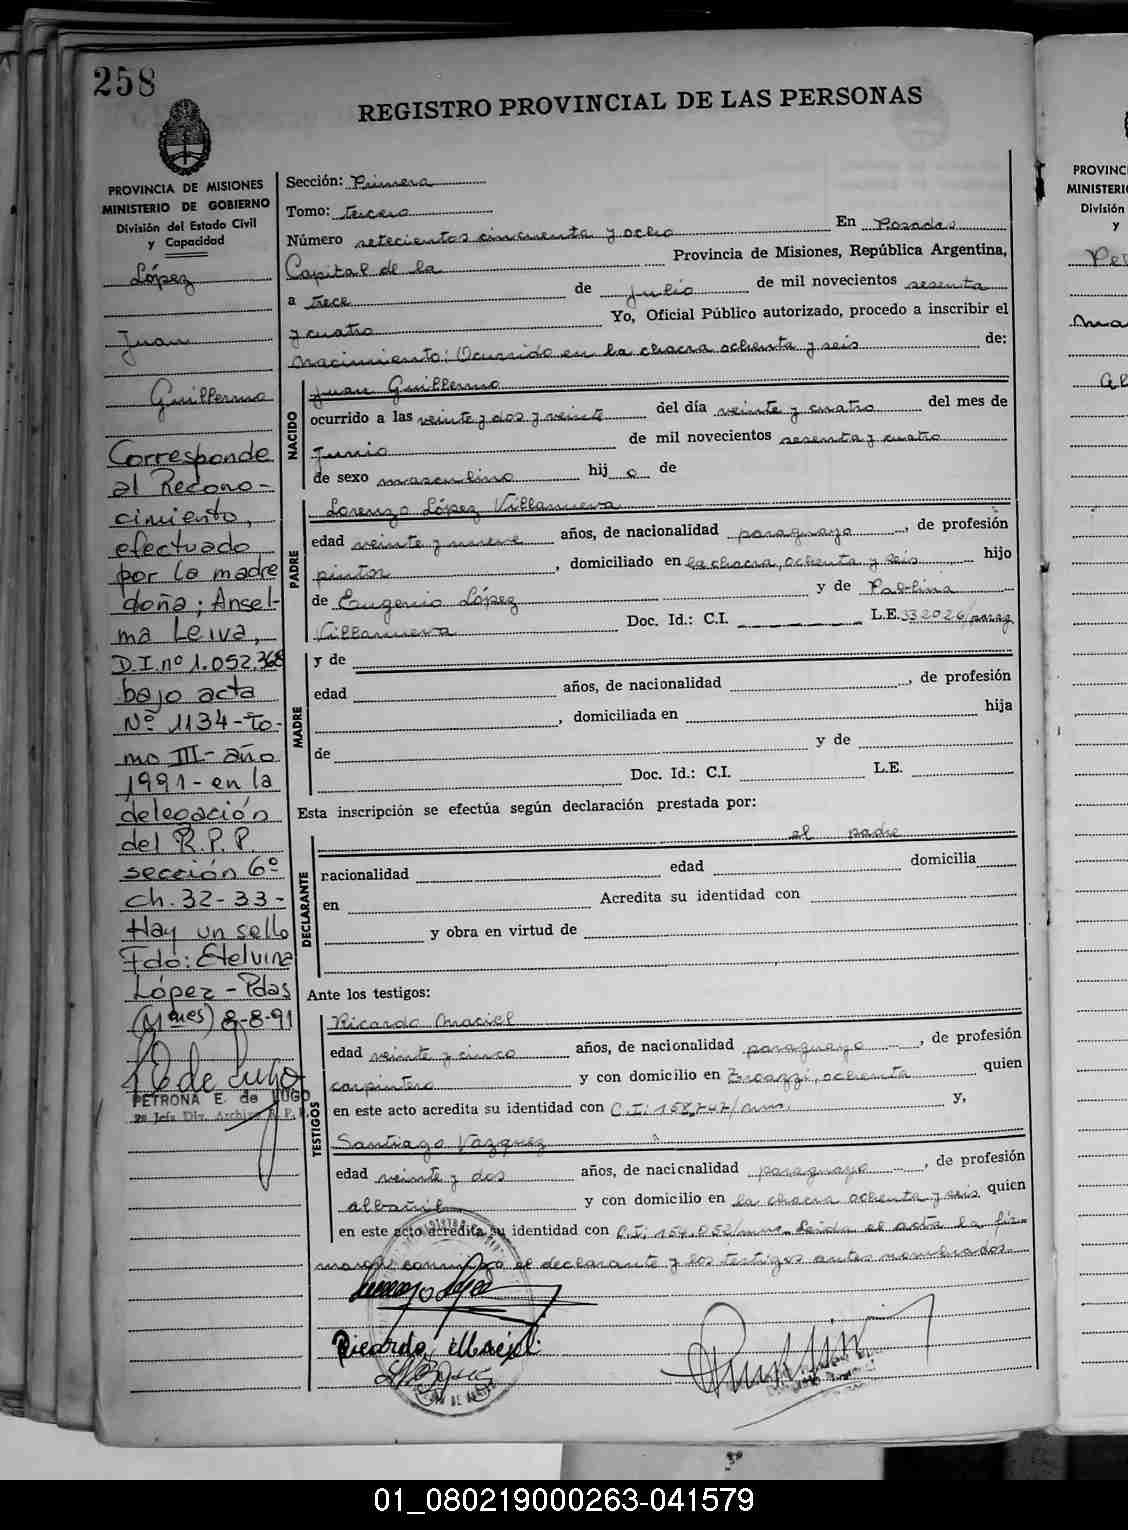 258
REGISTRO PROVINCIAL DE LAS PERSONAS
PROVINCIA DE MISIONES
MINISTERIO DE GOBIERNO
División del Estado Civil
y Capacidad
López
Juan
Guillermo
Corresponde
al Recono-
cimiento,
efectuado
por la madre
doña; Ansel-
ma Leiva,
D.I.nº 1.052.368
bajo acta
Nº 1134-To-
mo III- año
1991- en la
delegación
del R.P.P.
sección 6º
ch. 32-33-
Hay un sello
Fdo: Etelvina
López - Pdas
(Mnes) 8-8-91
PETRONA E. de LUGO
2º Jefe Div. Archivo R. P. P.
Sección: Primera
Tomo: tercero
Número setecientos cincuenta y ocho En Posadas
Capital de la Provincia de Misiones, República Argentina,
a trece de julio de mil novecientos sesenta
y cuatro Yo, Oficial Público autorizado, procedo a inscribir el
nacimiento: Ocurrido en la chacra ochenta y seis de:
NACIDO
Juan Guillermo
ocurrido a las veinte y dos y veinte del día veinte y cuatro del mes de
Junio de mil novecientos sesenta y cuatro
de sexo masculino hij o de
PADRE
Lorenzo López Villanueva
edad veinte y nueve años, de nacionalidad paraguayo, de profesión
pintor, domiciliado en la chacra, ochenta y seis hijo
de Eugenio López y de Pablina
Villanueva Doc. Id.: C.I. L.E. 332026/parag
MADRE
y de
edad años, de nacionalidad, de profesión
, domiciliada en hija
de y de
Doc. Id.: C.I. L.E.
Esta inscripción se efectúa según declaración prestada por:
el padre
DECLARANTE
nacionalidad edad domicilia
en Acredita su identidad con
y obra en virtud de
Ante los testigos:
TESTIGOS
Ricardo Maciel
edad veinte y cinco años, de nacionalidad paraguayo, de profesión
carpintero y con domicilio en ochenta quien
en este acto acredita su identidad con C.I: 158,747/mns. y,
Santiago Vazquez
edad veinte y dos años, de nacionalidad paraguayo, de profesión
albañil y con domicilio en la chacra ochenta y seis quien
en este acto acredita su identidad con C.I: 154.052/mns. Leida el acta la fir-
maron conmigo el declarante y los testigos antes nombrados.
Ricardo Maciel
PROVINC
MINISTERI
División
y
01_080219000263-041579